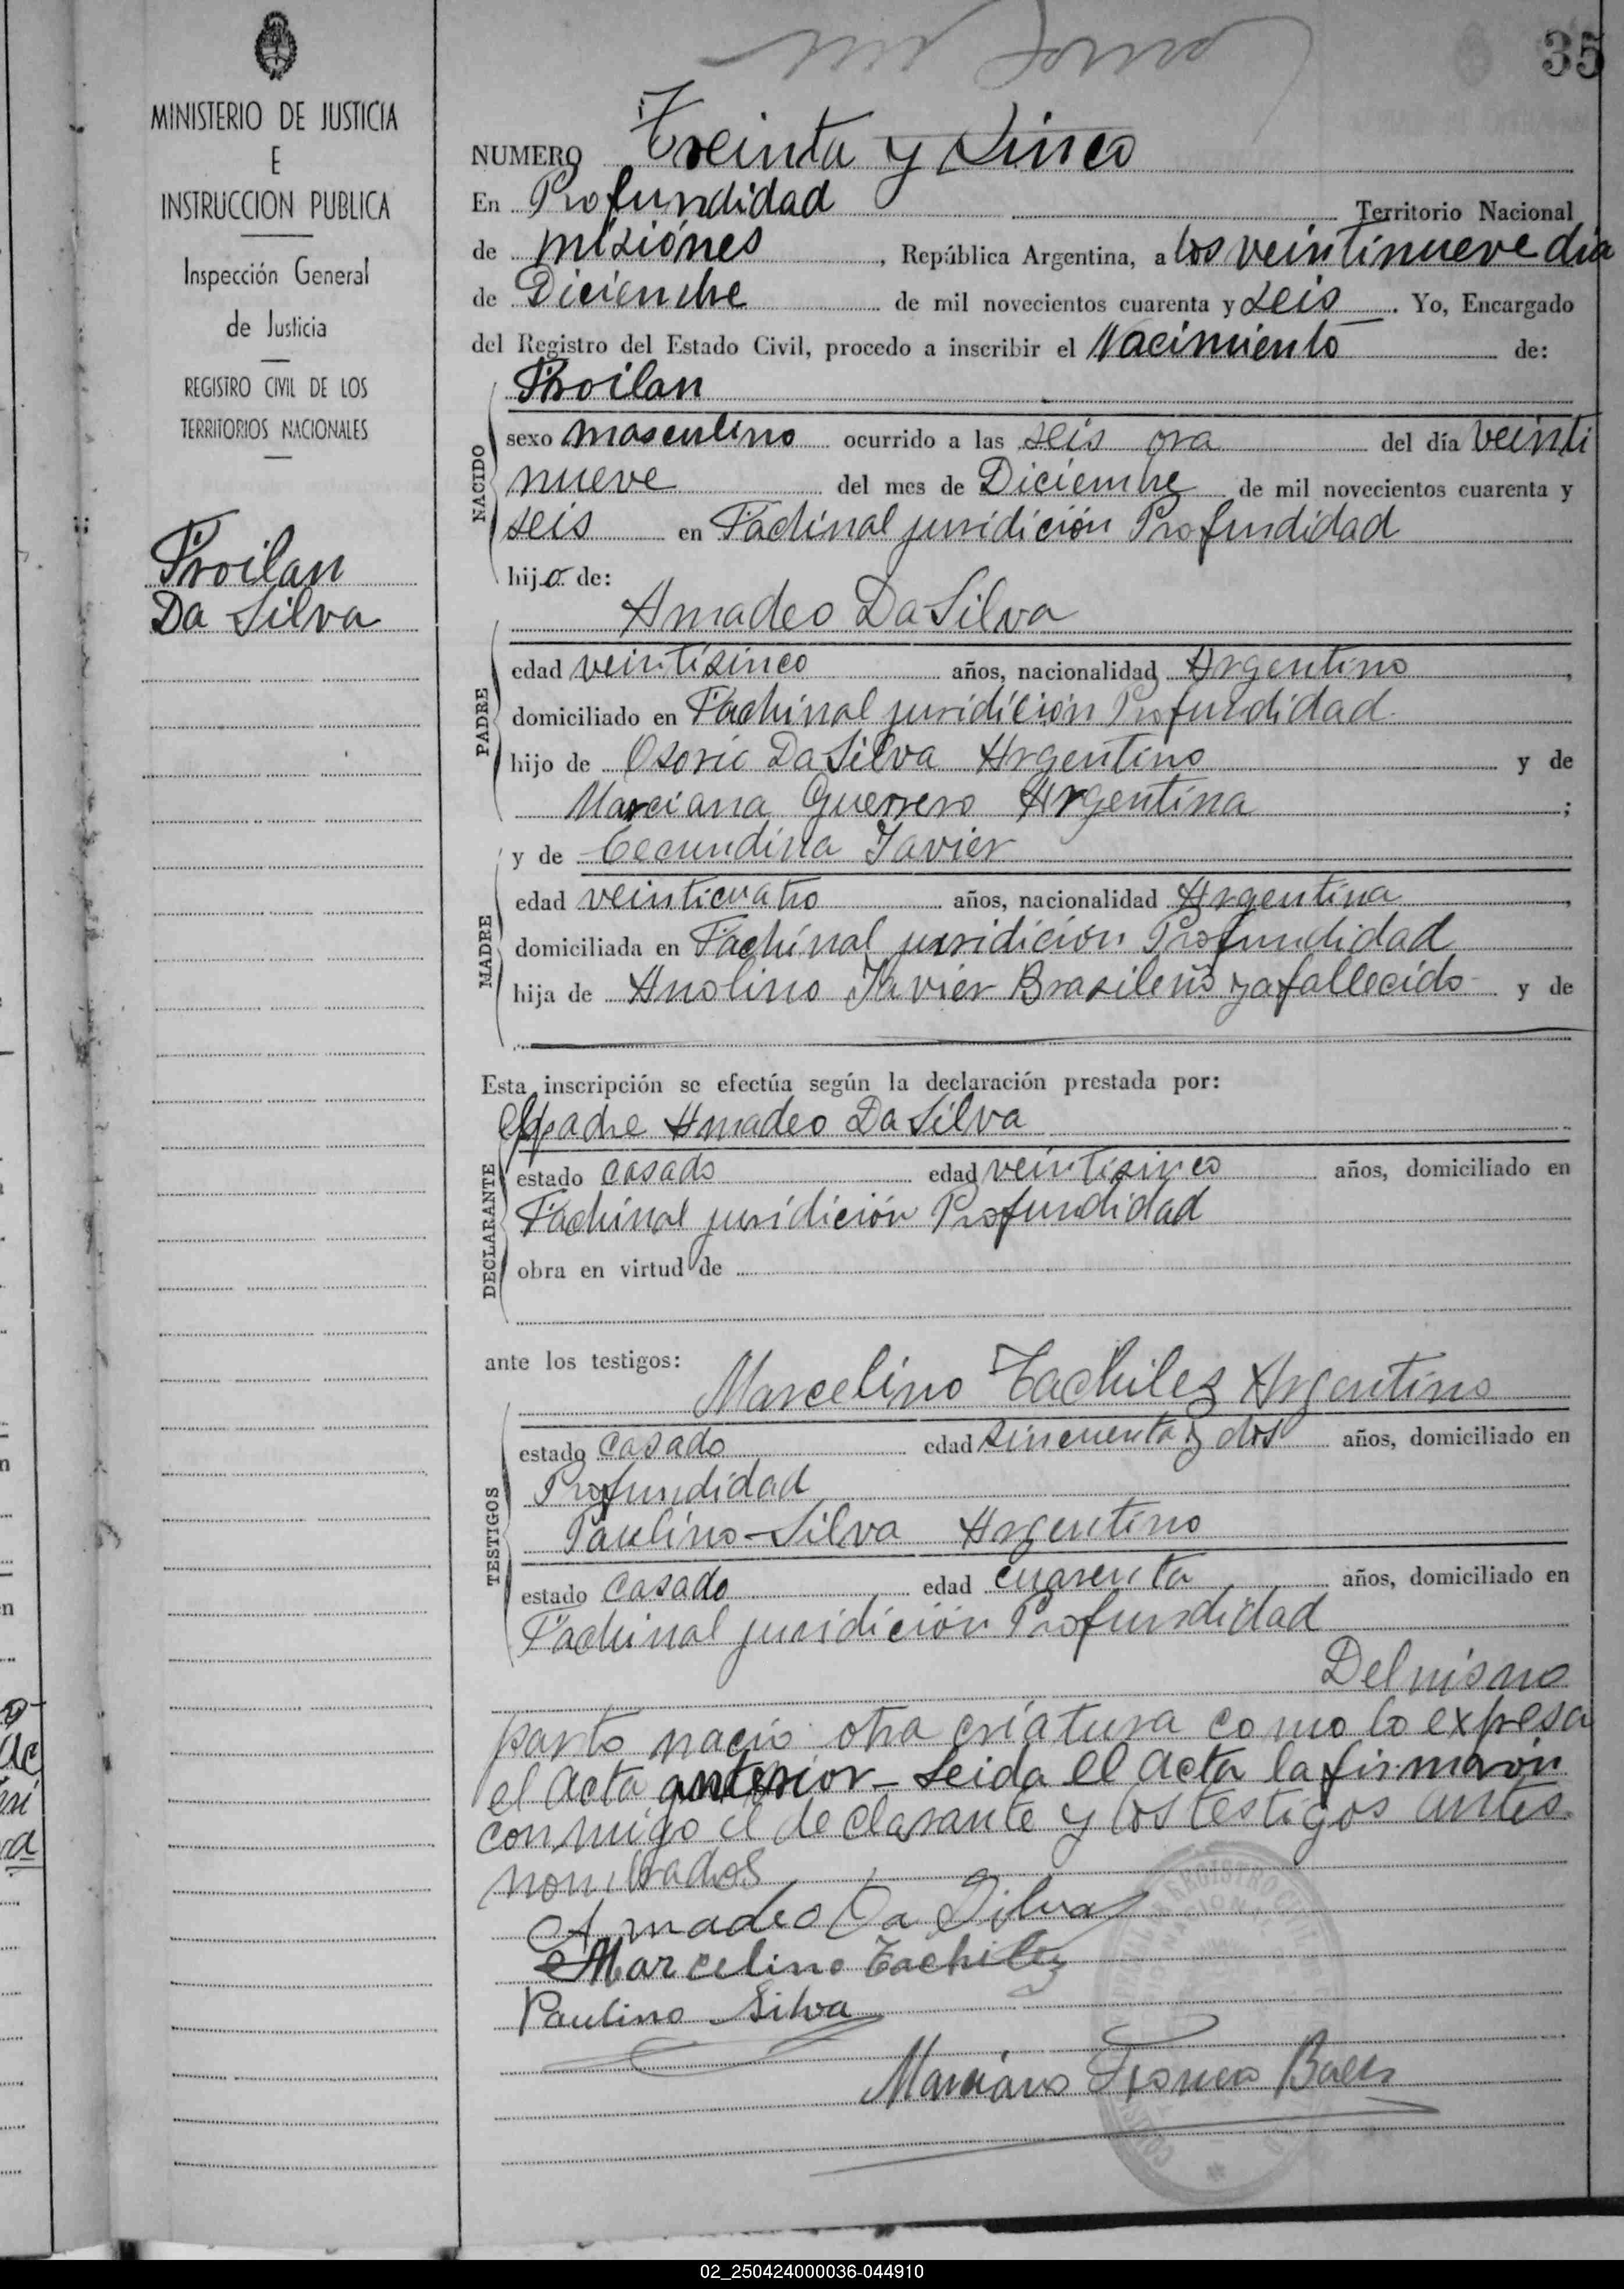 35
MINISTERIO DE JUSTICIA
E
INSTRUCCION PUBLICA
Inspección General
de Justicia
REGISTRO CIVIL DE LOS
TERRITORIOS NACIONALES
Froilan
Da Silva
NUMERO Treinta y Sinco
En Profundidad Territorio Nacional
de misiónes, República Argentina, a los veintinueve dia
de Diciembre de mil novecientos cuarenta y seis. Yo, Encargado
del Registro del Estado Civil, procedo a inscribir el Nacimiento de:
NACIDO
Froilan
sexo masculino ocurrido a las seis ora del día veinti
nueve del mes de Diciembre de mil novecientos cuarenta y
seis en Fachinal juridición Profundidad
hijo de:
PADRE
Amadeo Da Silva
edad veintisinco años, nacionalidad Argentino,
domiciliado en Fachinal juridición Profundidad
hijo de Osorio Da Silva Argentino y de
Marciana Guerrero Argentina;
MADRE
y de Cecundina Javier
edad veinticuatro años, nacionalidad Argentina,
domiciliada en Fachinal juridición Profundidad
hija de Anolino Javier Brasileño ya fallecido y de
Esta inscripción se efectúa según la declaración prestada por:
DECLARANTE
el padre Amadeo Da Silva
estado casado edad veintisinco años, domiciliado en
Fachinal juridición Profundidad
obra en virtud de
ante los testigos:
TESTIGOS
Marcelino Tachilez Argentino
estado casado edad sincuenta y dos años, domiciliado en
Profundidad
Paulino Silva Argentino
estado casado edad cuarenta años, domiciliado en
Fachinal juridición Profundidad
Del mismo
parto nacio otra criatura como lo expresa
el acta anterior - Leida el acta la firmaron
conmigo el declarante y los testigos antes
nombrados
Amadeo Da Silva
Marcelino Tachilez
Paulino Silva
Marciano Franco Baez
02_250424000036-044910